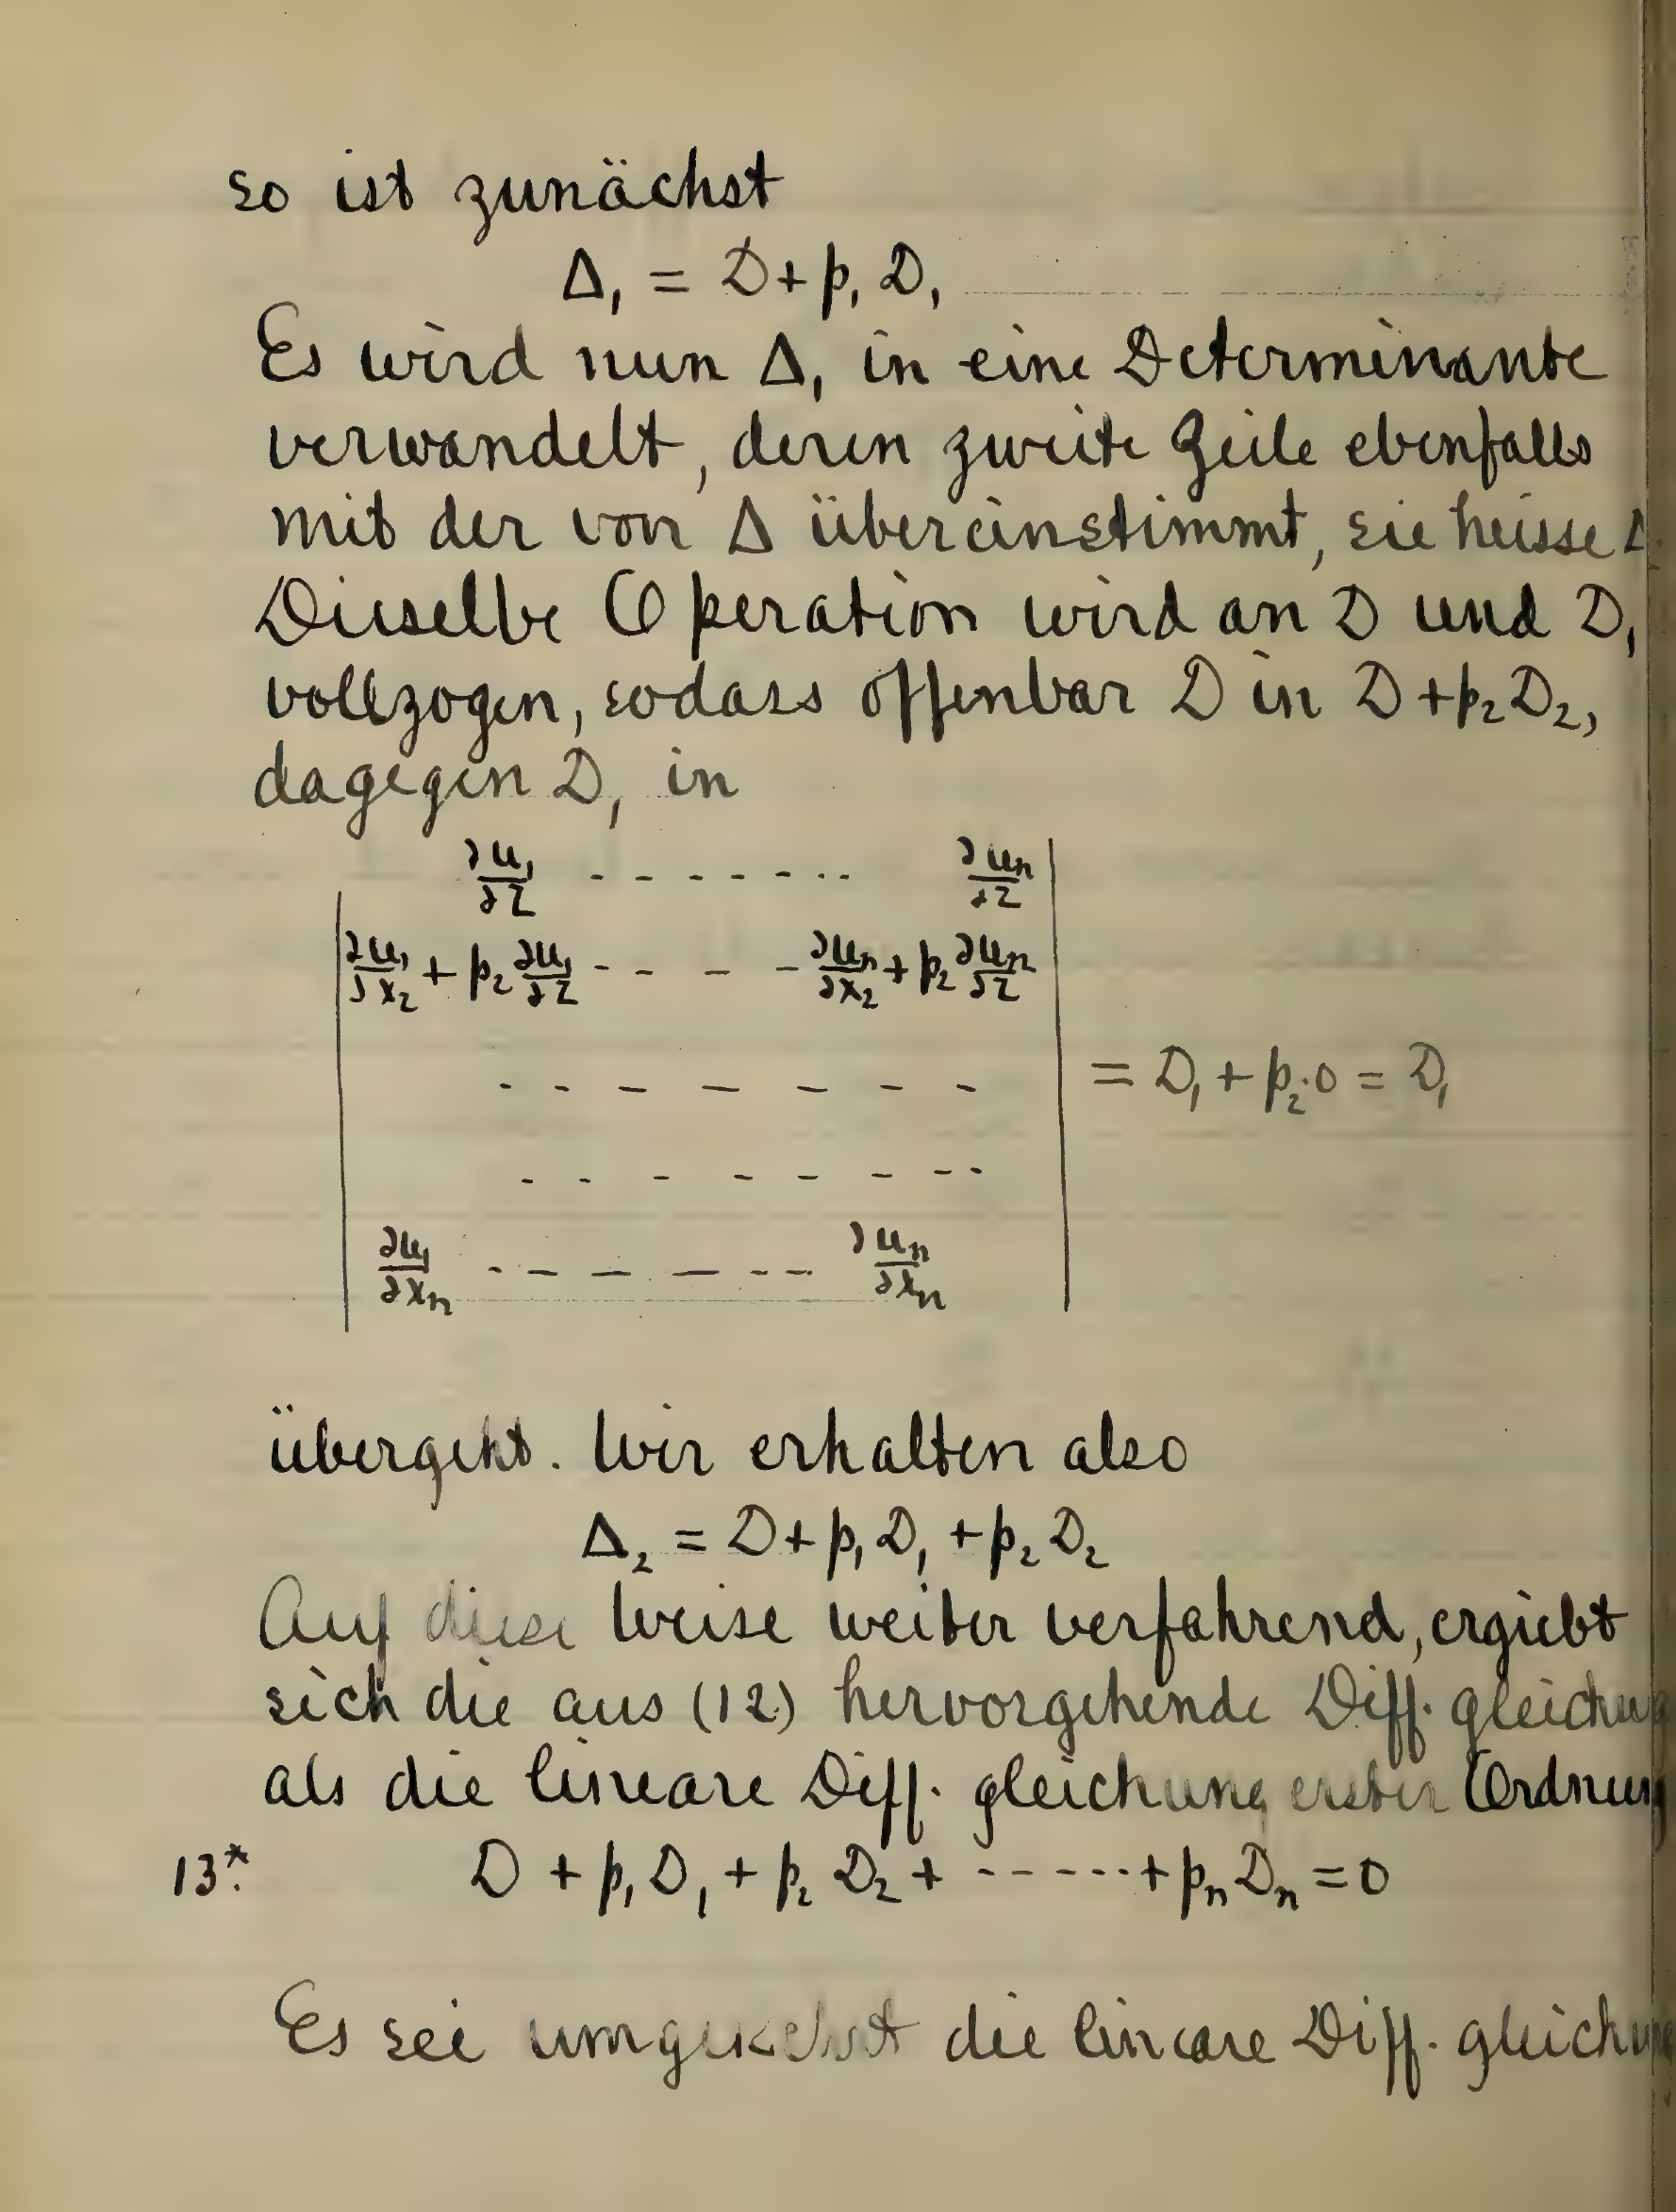 so ist zunächst
Δ₁ = D + p₁ D₁
Es wird nun Δ₁ in eine Determinante
verwandelt, deren zweite Zeile ebenfalls
mit der von Δ übereinstimmt, sie heisse Δ
Dieselbe Operation wird an D und D₁
vollzogen, sodass offenbar D in D + p₂D₂,
dagegen D₁ in
∂u₁/∂z - - - - - - - ∂uₙ/∂z
∂u₁/∂x₂ + p₂ ∂u₁/∂z - - - - ∂uₙ/∂x₂ + p₂ ∂uₙ/∂z
- - - - - - - = D₁ + p₂·0 = D₁
- - - - - - - -
∂u₁/∂xₙ - - - - - - - ∂uₙ/∂xₙ
übergeht. Wir erhalten also
Δ₂ = D + p₁ D₁ + p₂ D₂
Auf diese Weise weiter verfahrend, ergiebt
sich die aus (12) hervorgehende Diff. gleichung
als die lineare Diff. gleichung erster Ordnung
13*. D + p₁ D₁ + p₂ D₂ + - - - - - - + pₙ Dₙ = 0
Es sei umgekehrt die lineare Diff. gleichung